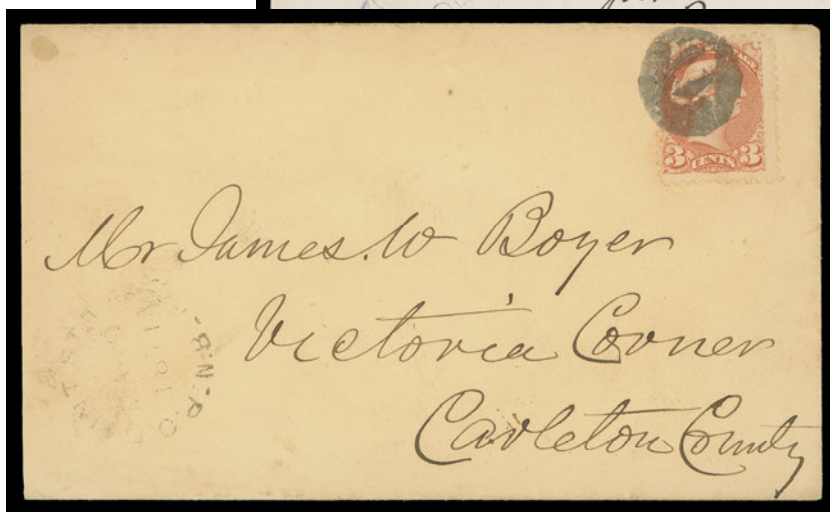 3 CENTS 3
Mr James. W Boyer
Victoria Corner
Carleton County